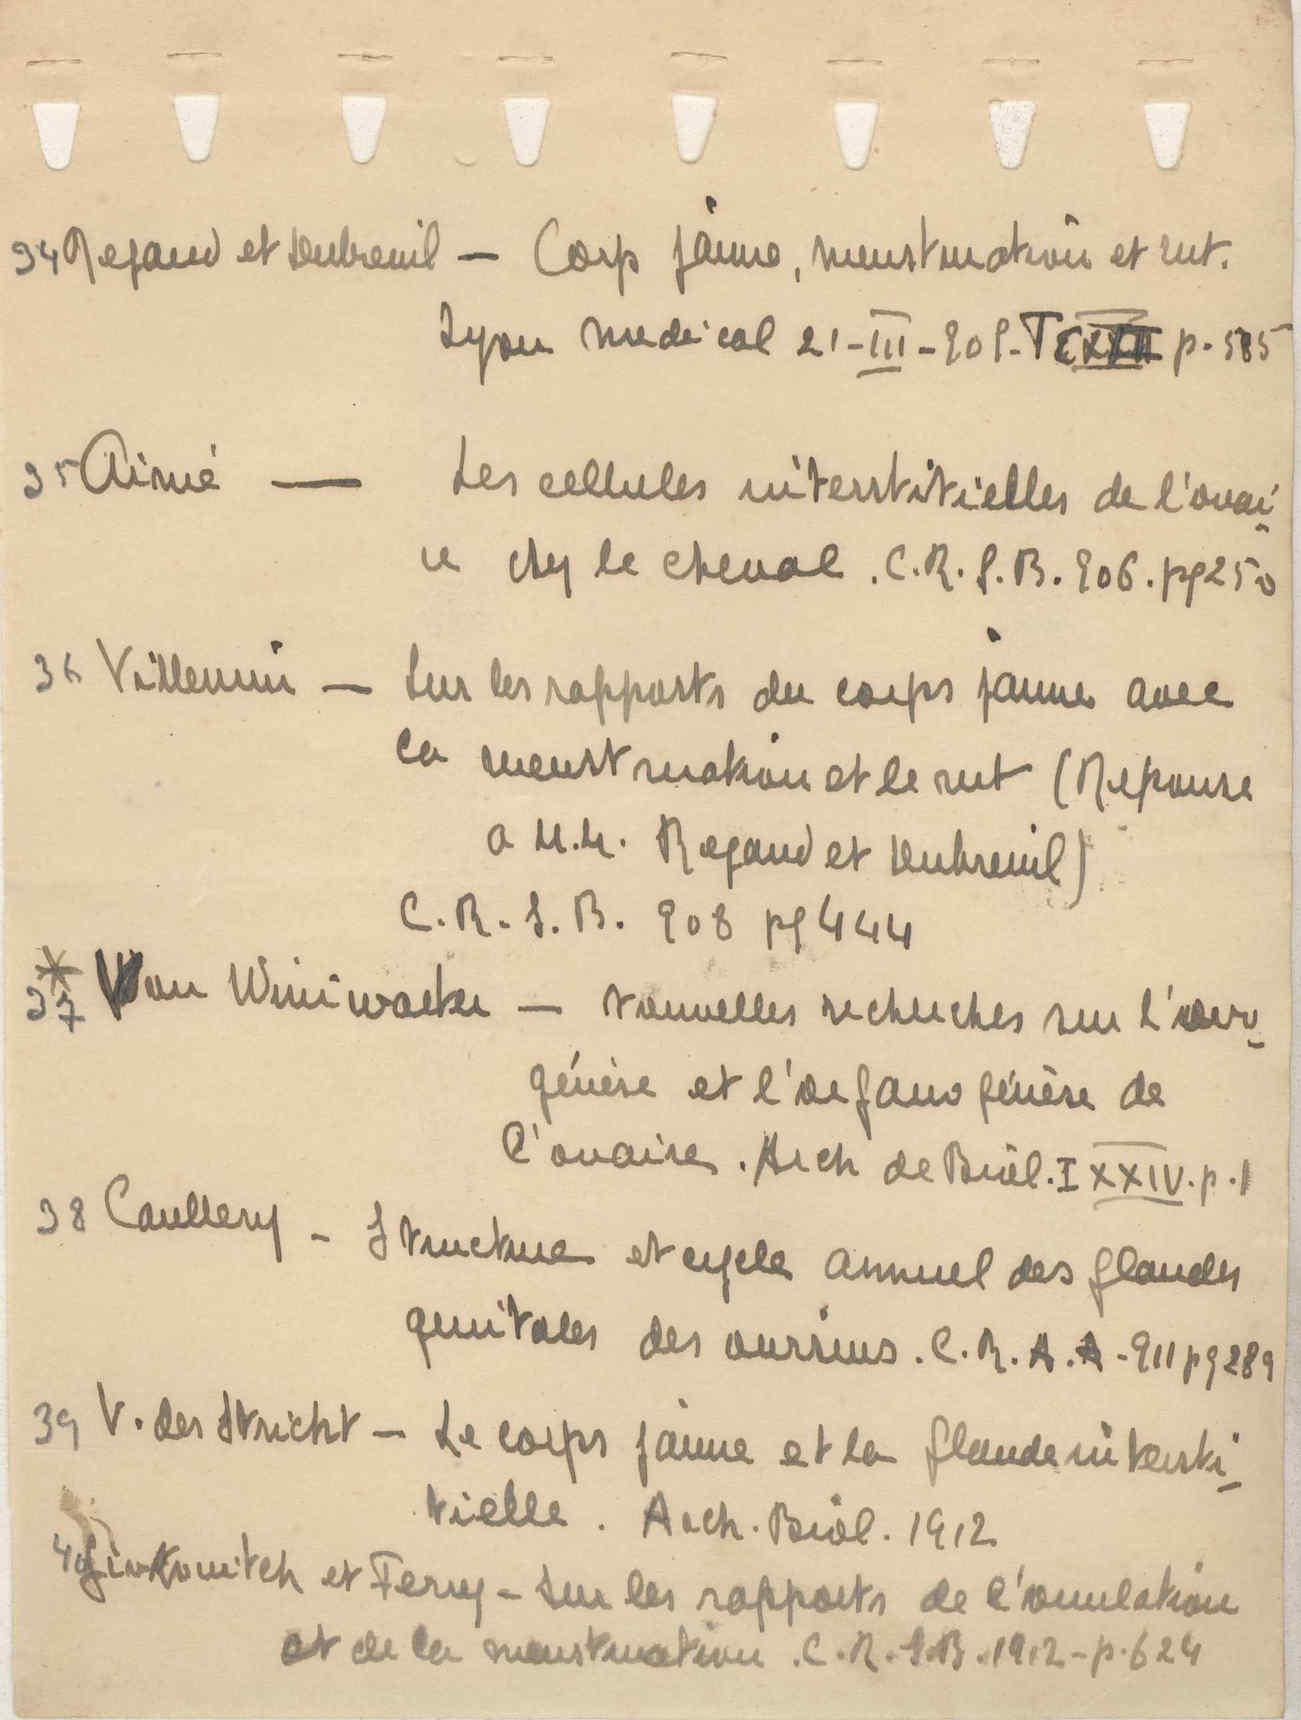 34 Regaud et Dubreuil — Corp jaune, menstruation et rut.
Lyon medical 21-III-909-T CXXII p. 585
35 Aimé — Les cellules interstitielles de l'ovai-
re chez le cheval. C.R.S.B. 906. pg 250
36 Villemin — Sur les rapports du corps jaune avec
la menstruation et le rut (Reponse
a M.M. Regaud et Dubreuil)
C.R.S.B. 908 pg 444
*
37 Von Winiwarter — Nouvelles recherches sur l'ovo-
génèse et l'organogénèse de
l'ovaire. Arch de Biol. T XXIV. p. 1
38 Caullery - Structure et cycle annuel des glandes
genitales des oursins. C.R.A.A - 911 pg 289
39 V. der Stricht — Le corps jaune et la glande intersti-
tielle. Arch. Biol. 1912
40 et Ferry - Sur les rapports de l'ovulation
et de la menstruation. C.R.S.B. 1912 - p. 624